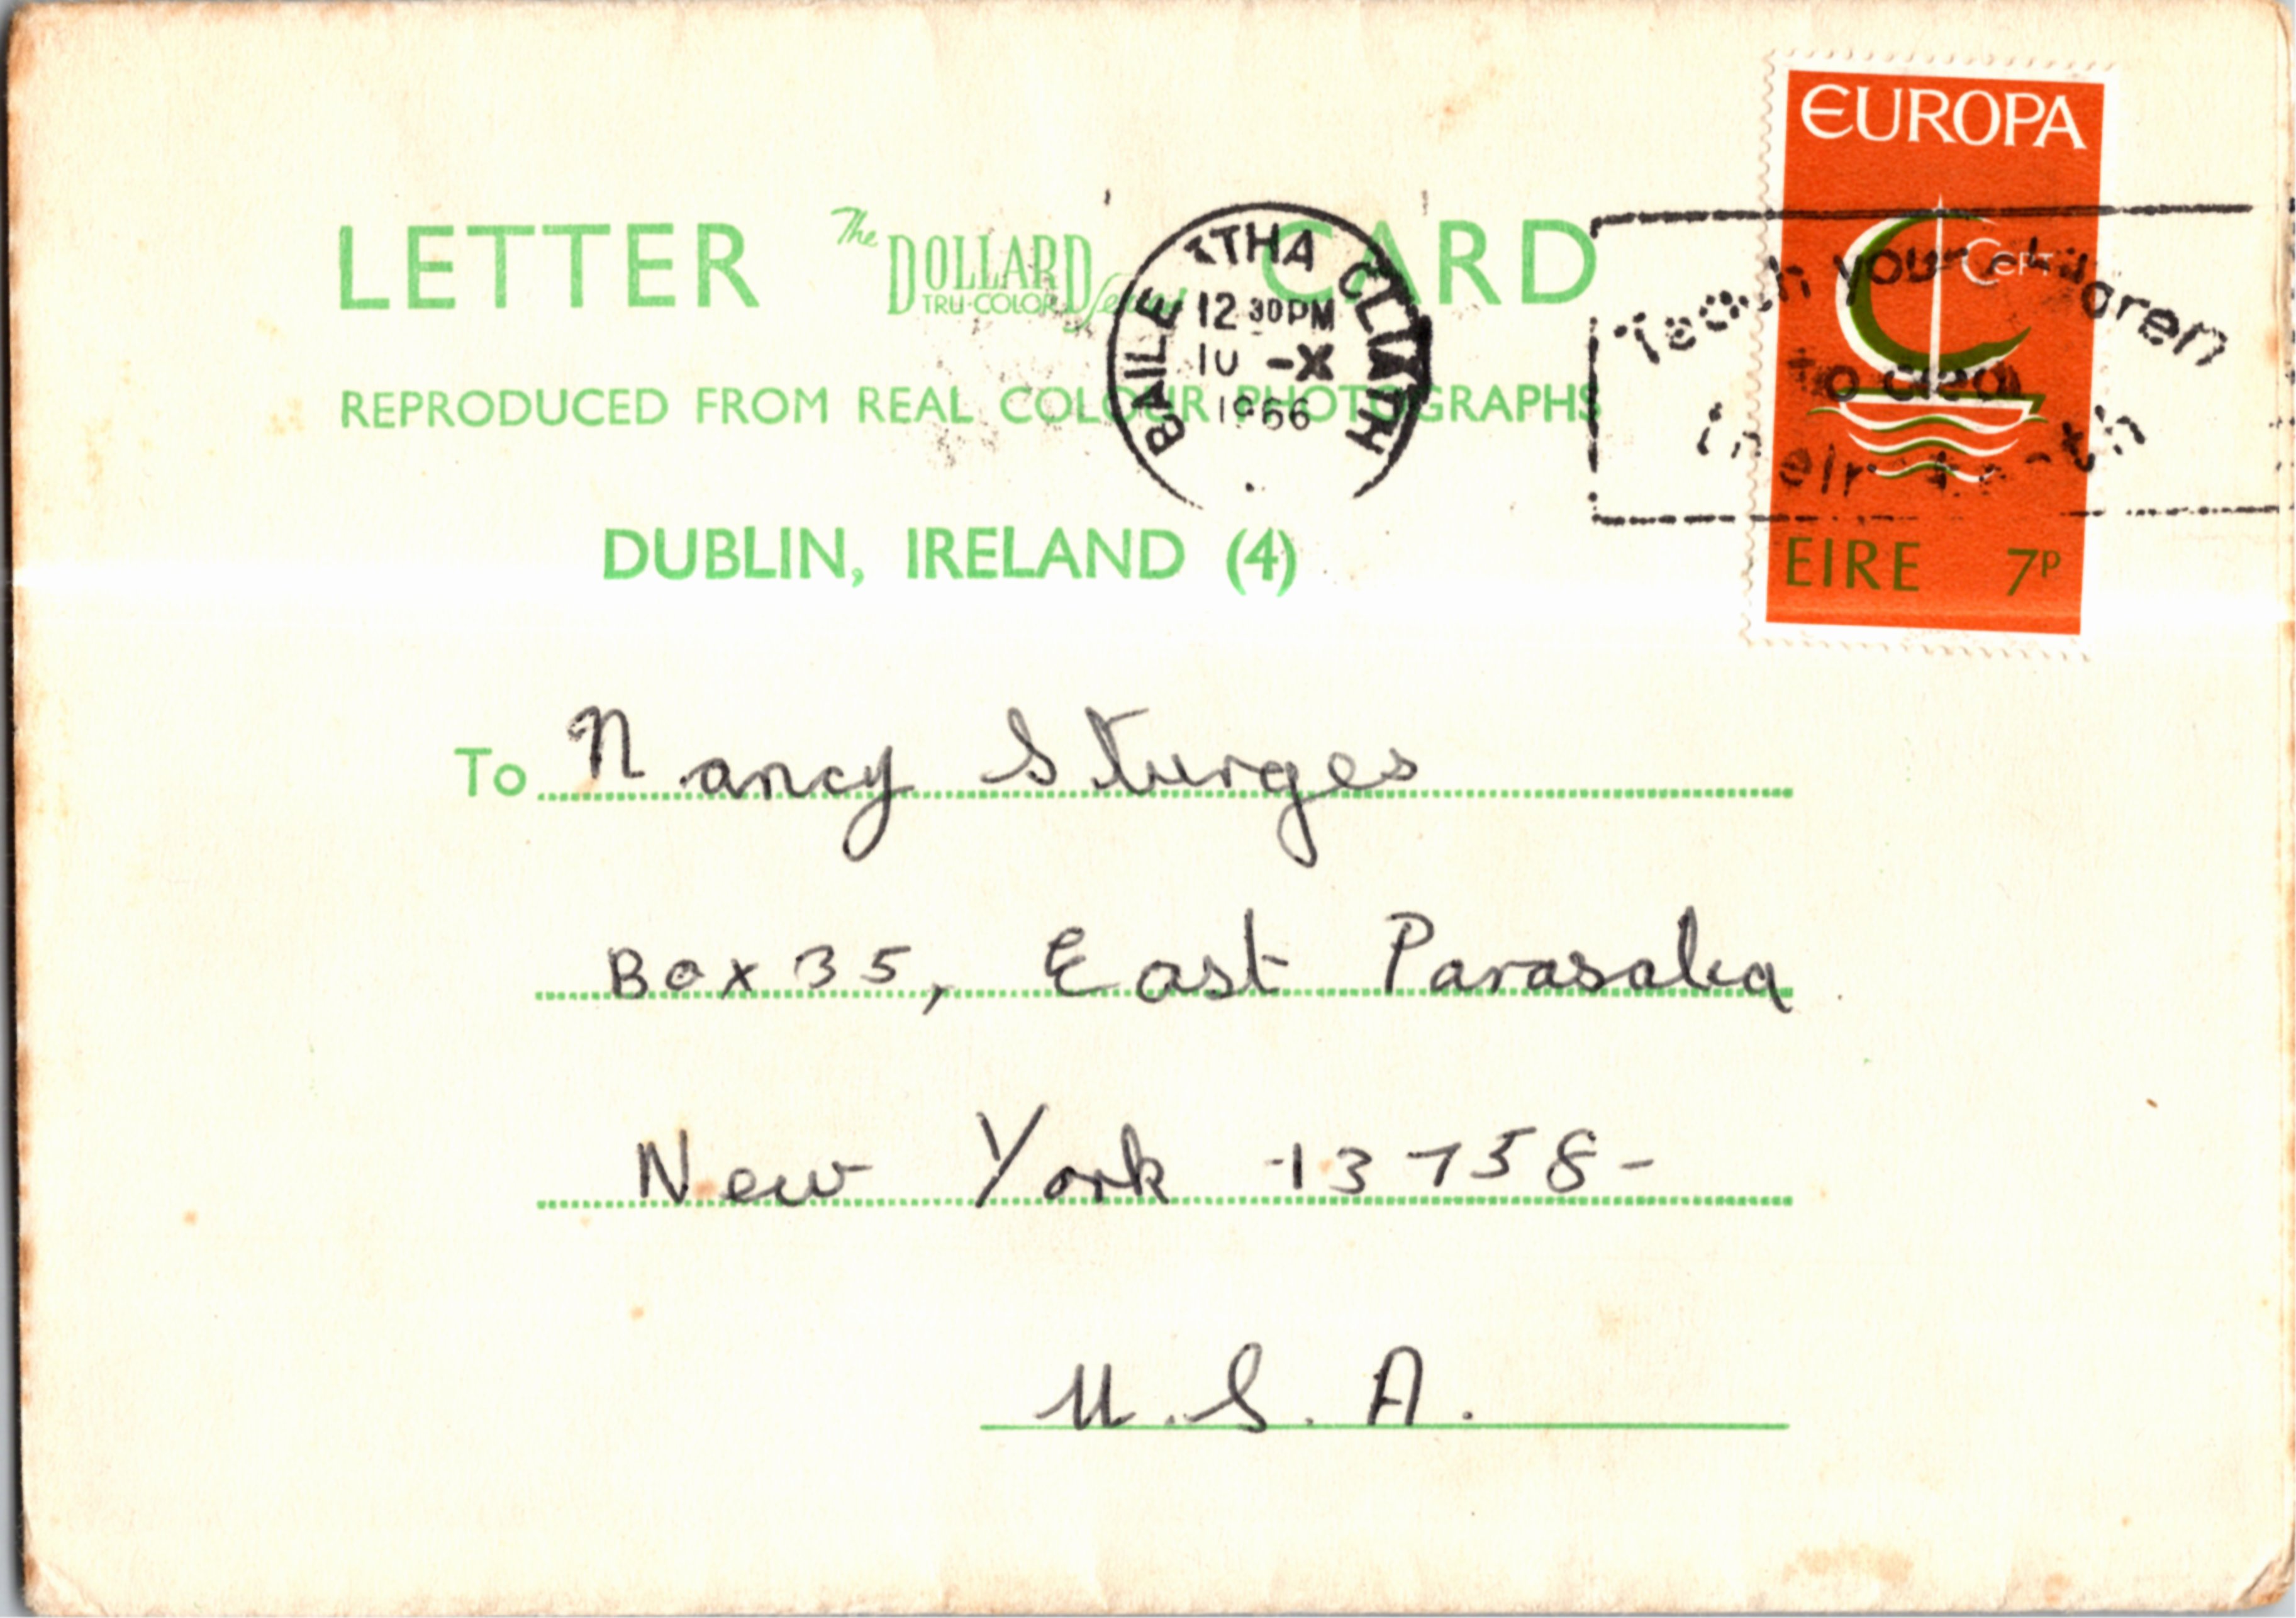 EUROPA
LETTER The DOLLARD CARD
TRU-COLOR Series
BAILE ATHA CLIATH
12 30PM
10 -X
1966
Cept
Teach your children
to clean
their teeth
REPRODUCED FROM REAL COLOUR PHOTOGRAPHS
DUBLIN, IRELAND (4)
EIRE 7P
To Nancy Sturges
Box 35, East Parasala
New York 13758-
U.S.A.